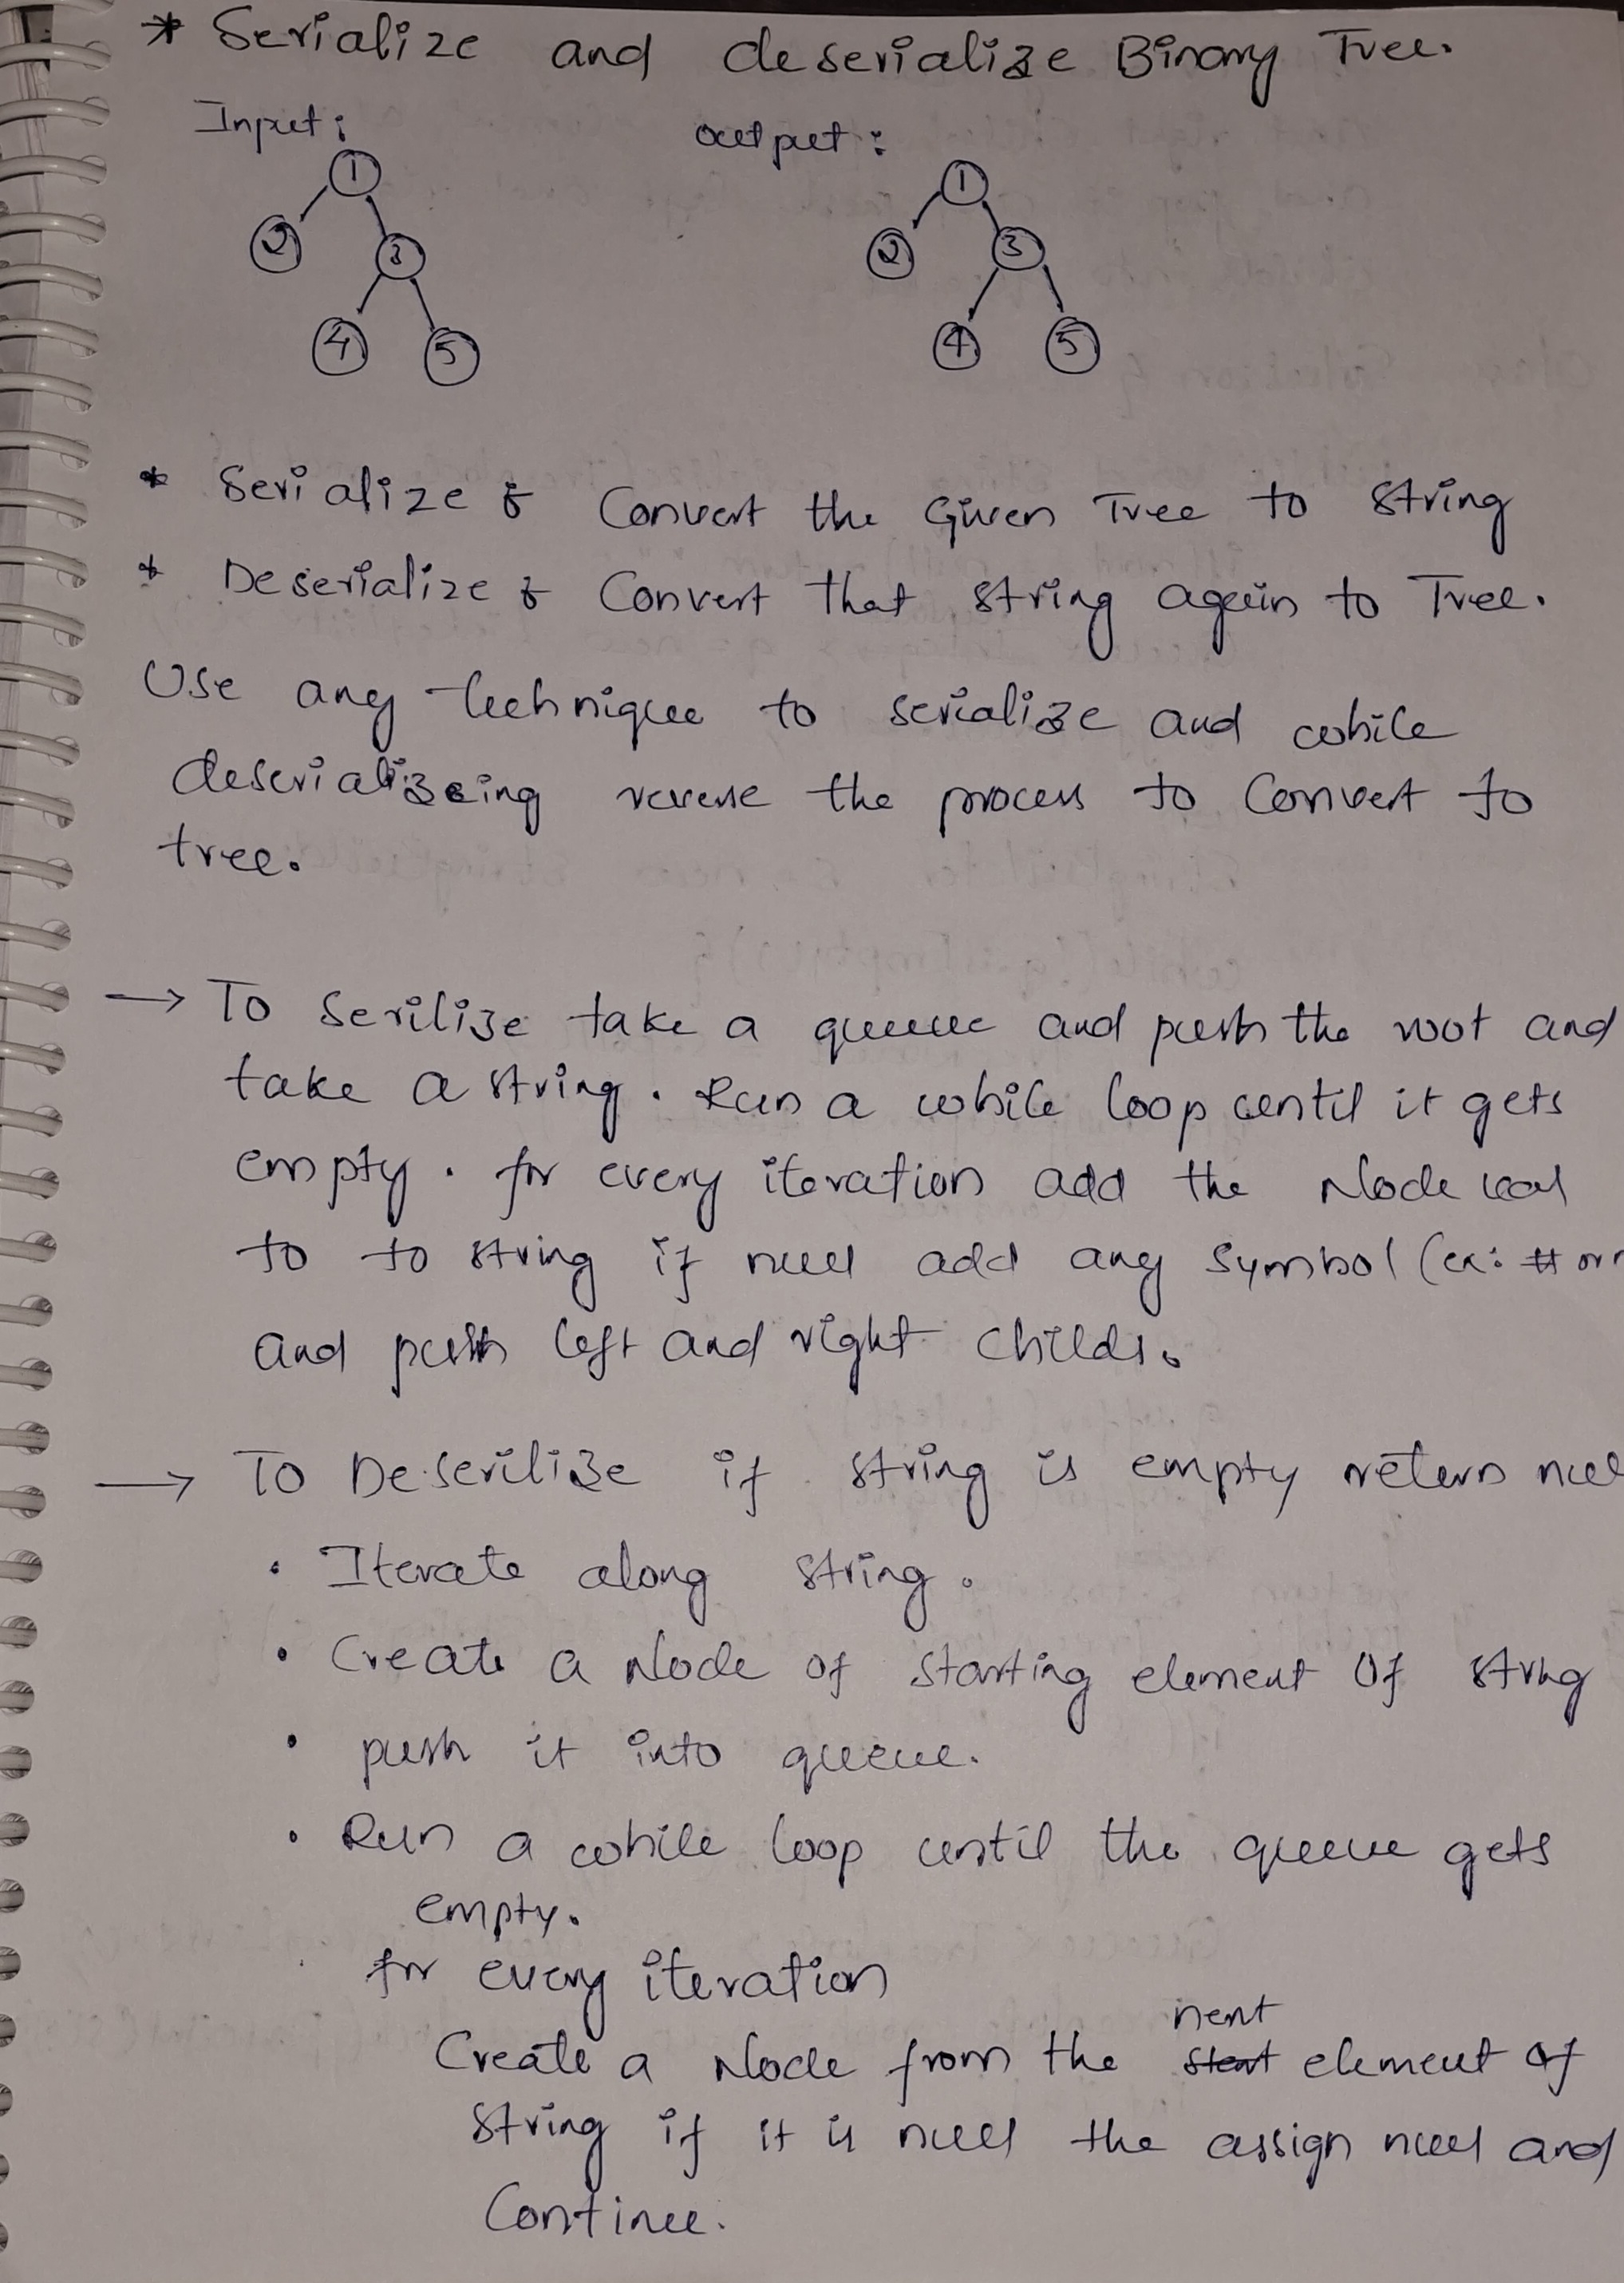 * Serialize and deserialize Binary Tree.
Input: Output:
1 1
2 3 2 3
4 5 4 5
* Serialize : Convert the Given Tree to string
* Deserialize : Convert that string again to Tree.
Use any technique to serialize and while
deserializeing reverse the process to Convert to
tree.
→ To Serilize take a queue and push the root and
take a string. Run a while loop until it gets
empty. for every iteration add the Node val
to to string if null add any symbol (ex: # or
and push left and right childs.
→ To Deserilize if string is empty return
• Iterate along string.
• Create a Node of starting element Of string
• push it into queue.
• Run a while loop until the queue gets
empty.
for every iteration
next
Create a Node from the start element of
string if it is null the assign null and
Continue.